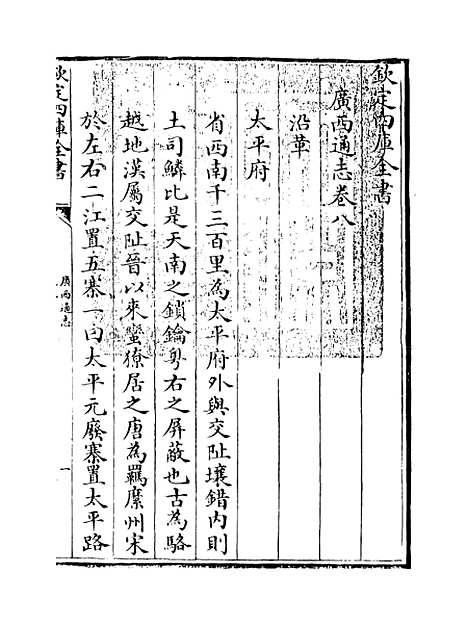 欽定四庫全書
廣西通志卷八
沿革
太平府
省西南千三百里為太平府外與交阯壤錯内則
土司鱗比是天南之鎖鑰粤右之屏蔽也古為駱
越地漢屬交阯晉以來蠻獠居之唐為羈縻州宋
於左右二江置五寨一曰太平元廢寨置太平路
欽定四庫全書
廣西通志
一